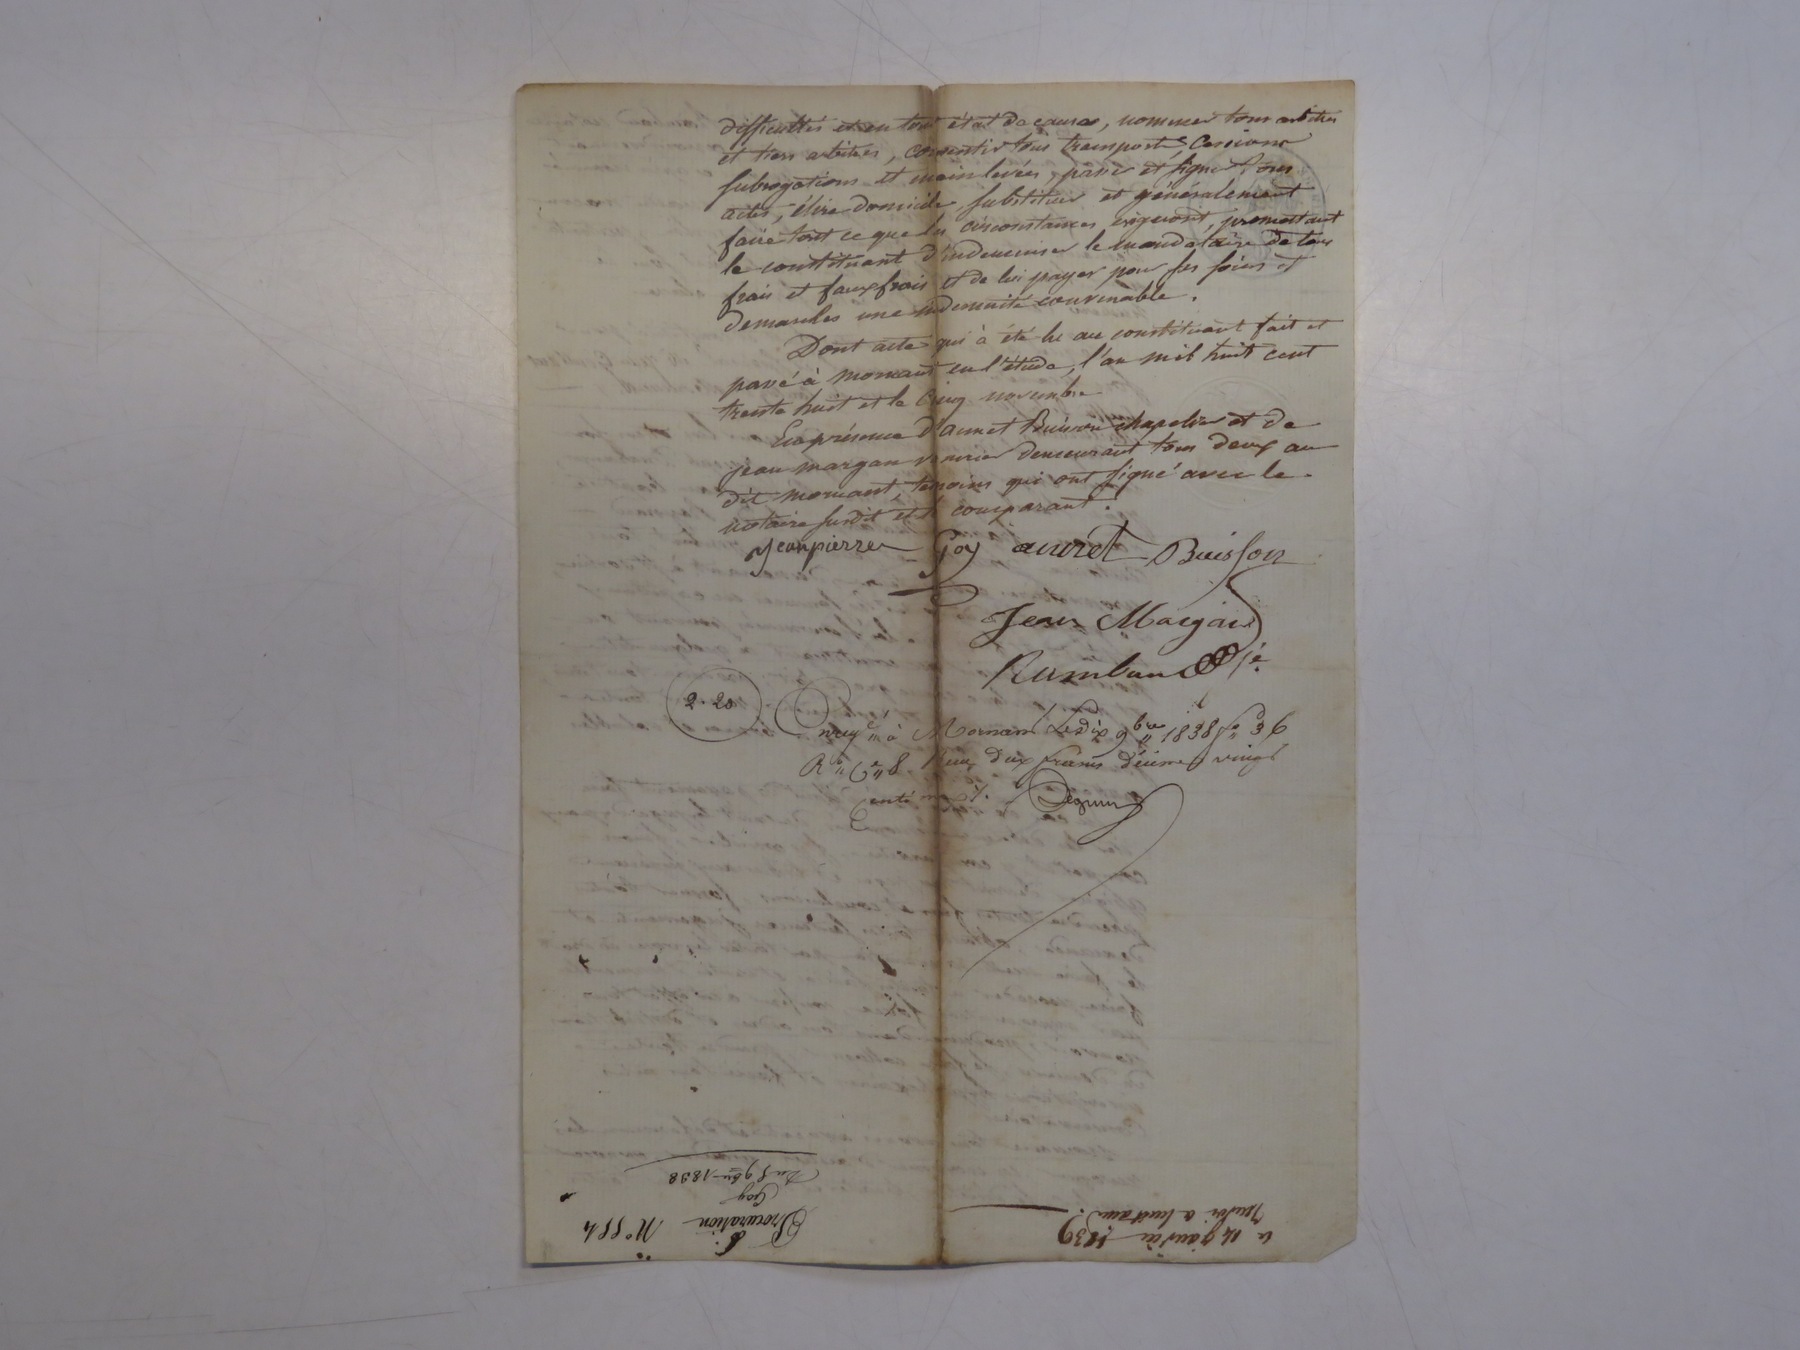 difficultés et en tout état de cause, nommer tous arbitres
et tiers arbitres, consentir tous transports, Cessions
subrogations et mainlevées, passer et signer tous
actes, élire domicile, substituer et généralement
faire tout ce que les circonstances exigeront, promettant
le constituant d'indemniser le mandataire de tous
frais et faux frais et de lui payer pour ses soins et
demarches une indemnité convenable.
Dont acte qui à été lu au constituant fait et
passé à mornant en l'étude, l'an mil huit cent
trente huit et le Cinq novembre
En présence d'annet Buisson chapelier et de
jean margan demeurant tous deux au
dit mornant, temoins qui ont signé avec le
notaire susdit et le comparant.
Jeanpierre Goy annet Buisson
Jean Margan
Rambaud
2.20
Enreg.é à Mornant Le dix 9bre 1838 f° 36
R° C.e 8. Reçu deux francs décime vingt
centimes.
le 12 janvier 1839
Procuration
Goy
Du 5 9bre 1838